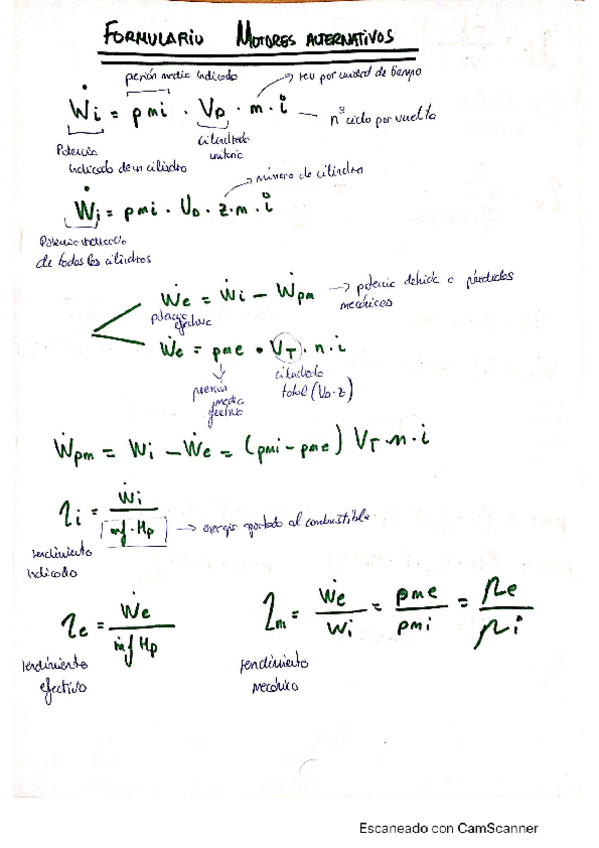 FORMULARIO MOTORES ALTERNATIVOS
presión media indicada
rev por unidad de tiempo
Ẇi = pmi · VD · m · i
nº ciclo por vuelta
Potencia
indicada de un cilindro
cilindrada
unitaria
número de cilindros
Ẇi = pmi · VD · z · m · i
Potencia indicada
de todos los cilindros
Ẇe = Ẇi − Ẇpm → potencia debida a pérdidas
mecánicas
potencia
efectiva
Ẇe = pme · VT · n · i
presión
media
efectiva
cilindrada
total (VD·z)
Ẇpm = Wi − Ẇe = (pmi − pme) VT · n · i
ηi = Ẇi / ṁf · Hp → energía aportada al combustible
rendimiento
indicado
ηe = Ẇe / ṁf Hp
ηm = Ẇe / Wi = pme / pmi = ηe / ηi
rendimiento
efectivo
rendimiento
mecánico
Escaneado con CamScanner